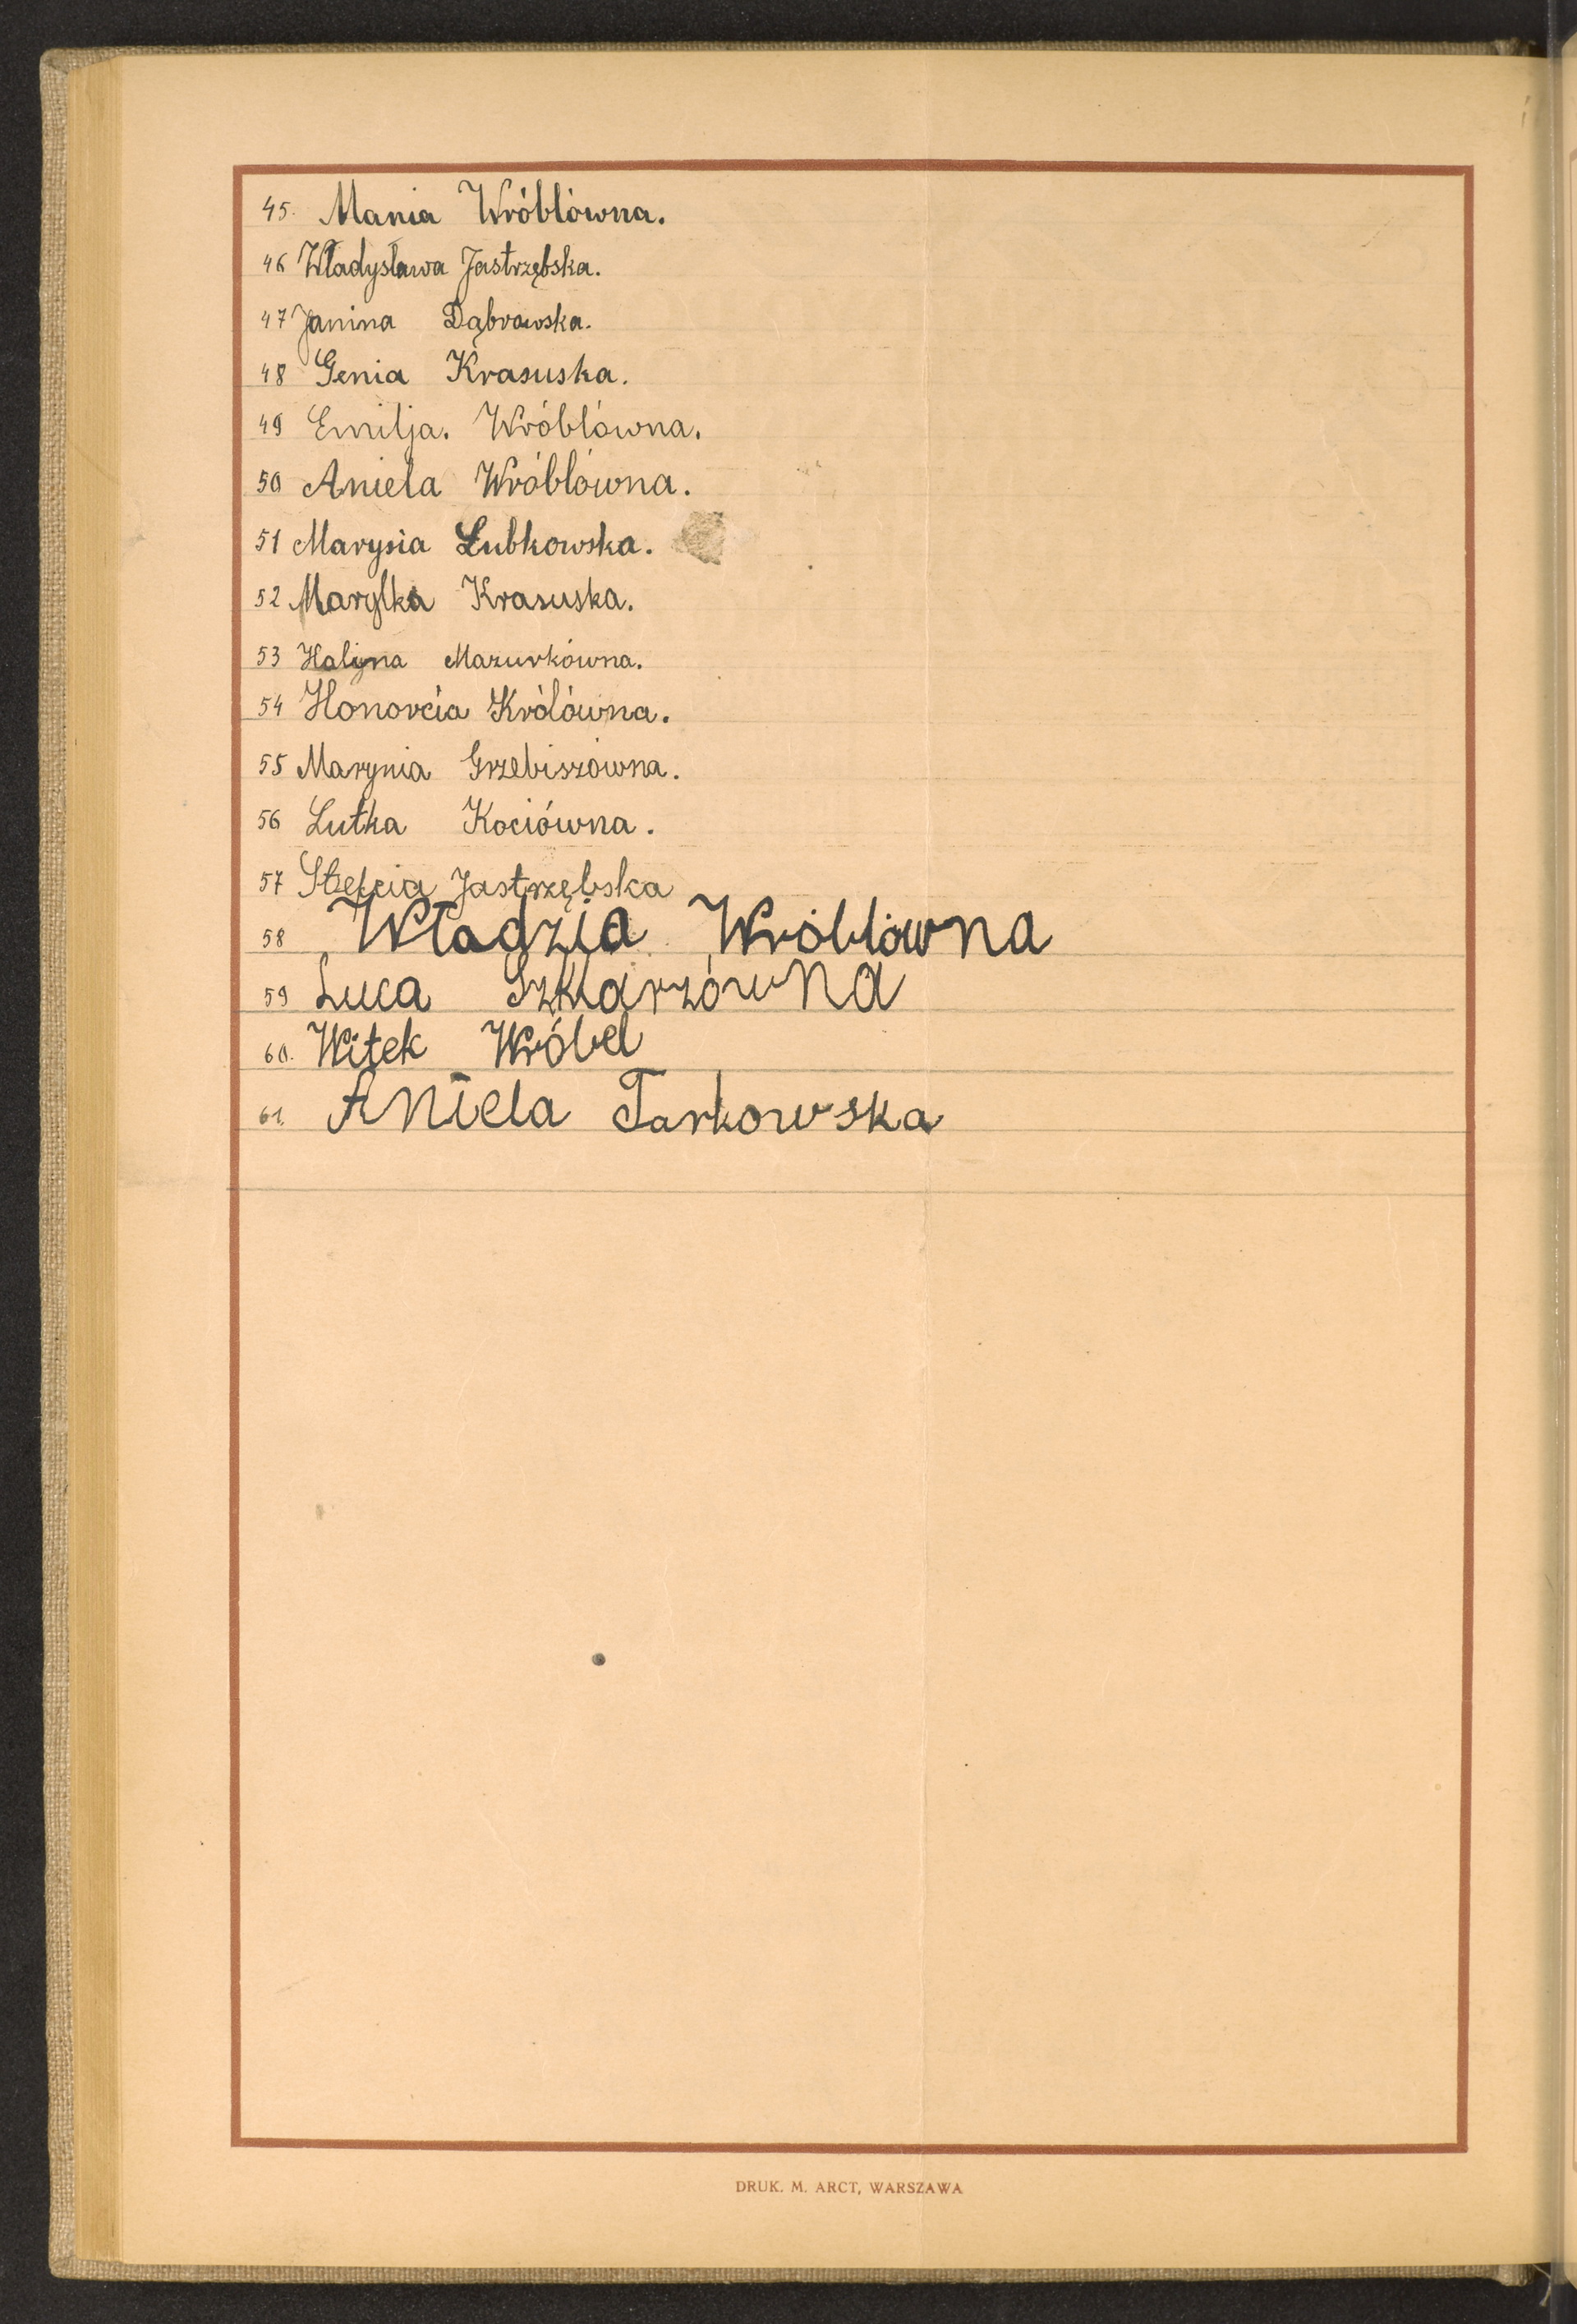 45. Mania Wróblówna.
46 Władysława Jastrzębska.
47 Janina Dąbrowska.
48 Genia Krasuska.
49 Emilja. Wróblówna.
50 Aniela Wróblówna.
51 Marysia Łubkowska.
52 Marylka Krasuska.
53 Halina Mazurkówna.
54 Honorcia Królówna.
55 Marynia Grzebiszówna.
56 Lutka Kociówna.
57 Stefcia Jastrzębska
58 Władzia Wróblówna
59 Luca Szklarzówna
60. Witek Wróbel
61. Aniela Tarkowska
DRUK. M. ARCT, WARSZAWA